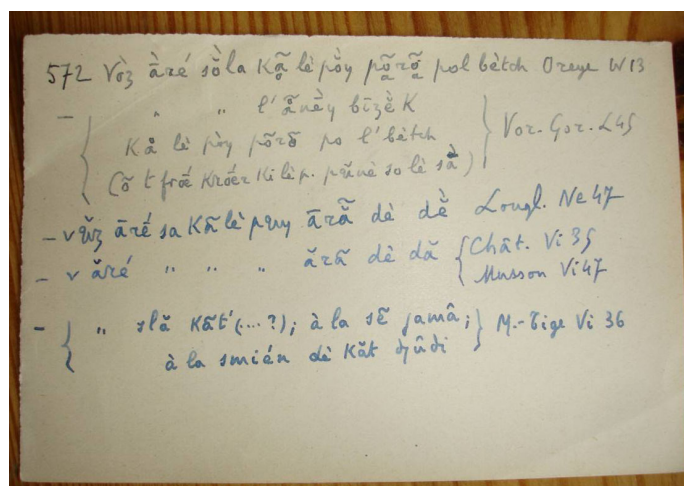 572 Vòz àré sò la Kã lè pòy põrõ pol bètch Oreye W 13
— " " l'ãnèy bîzèk
Kå lè pòy põrõ po l'bètch
(Cõ t frœ̃ Krœ̃r Ki lè p. pũnè so lè sã) } Vor. Gor. L 45
— vũz ãré sa Kã lè puy ārã dè dè̃ Longl. Ne 47
— v ãré " " " ãrã dè dã { Chât. Vi 35
Musson Vi 47
— { " slã Kãt' (...?); à la sẽ jamâ; } M.-Tige Vi 36
à la smién dè Kăt djûdi